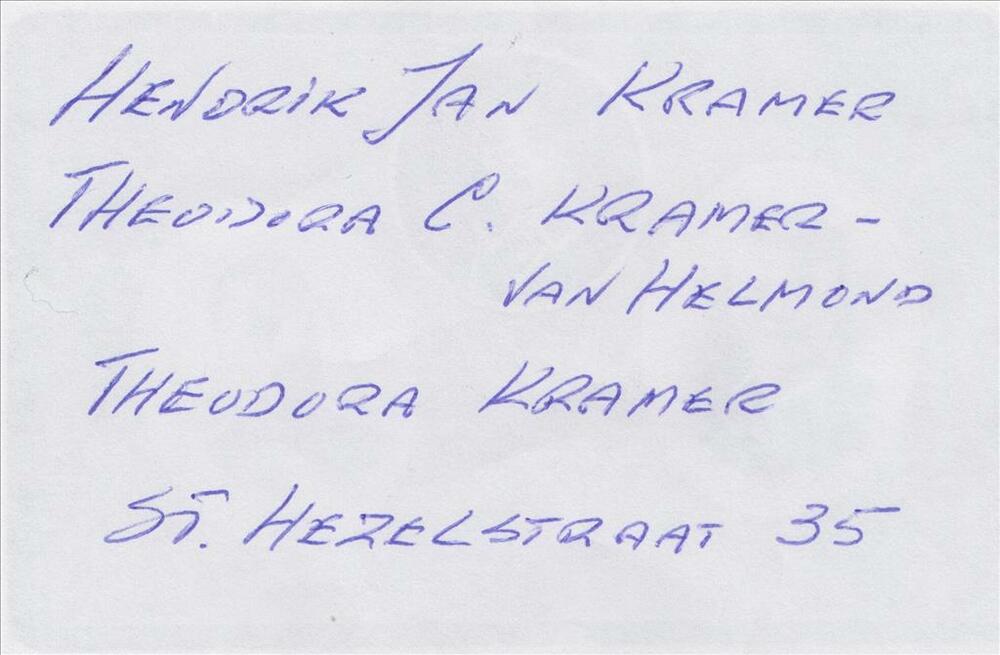 HENDRIK JAN KRAMER
THEODORA C. KRAMER -
VAN HELMOND
THEODORA KRAMER
ST. HEZELSTRAAT 35